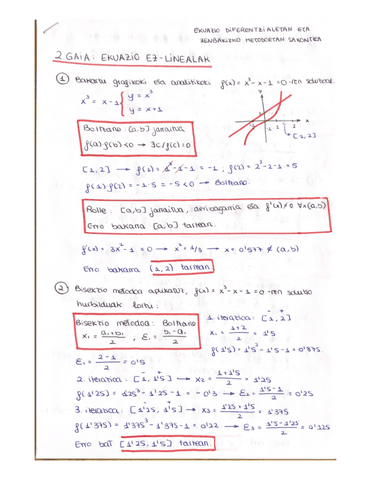 EKUAZIO DIFERENTZIALETAN ETA
ZENBAKIZKO METODOETAN SAKONTZEA
2 GAIA: EKUAZIO EZ-LINEALAK
① Bakartu grafikoki eta analitikoki f(x) = x³ - x - 1 = 0 -ren soluzioa.
x³ = x - 1 { y = x³
y = x + 1
Bolzano: [a,b] jarraitua
f(a)·f(b) < 0 → ∃c / f(c) = 0
[1,2]
[1,2] → f(1) = 1³ - 1 - 1 = -1 ; f(2) = 2³ - 2 - 1 = 5
f(1)·f(2) = -1·5 = -5 < 0 → Bolzano.
Rolle: [a,b] jarraitua, deribagarria eta f'(x) ≠ 0 ∀x(a,b)
Erro bakarra [a,b] tartean.
f'(x) = 3x² - 1 = 0 → x² = 1/3 → x = 0'577 ∉ (a,b)
Erro bakarra (1,2) tartean.
② Bisekzio metodoa aplikatuz, f(x) = x³ - x - 1 = 0 -ren soluzio
hurbilduak lortu:
Bisekzio metodoa: Bolzano
x₁ = a₁ + b₁ / 2 , ε₁ = b₁ - a₁ / 2
1. iterazioa: [1, 2]
x₁ = 1+2 / 2 = 1'5
f(1'5) = 1'5³ - 1'5 - 1 = 0'875.
ε₁ = 2-1 / 2 = 0'5
2. iterazioa: [1, 1'5] → x₂ = 1+1'5 / 2 = 1'25
f(1'25) = 1'25³ - 1'25 - 1 = -0'3 → ε₂ = 1'5-1 / 2 = 0'25
3. iterazioa: [1'25, 1'5] → x₃ = 1'25+1'5 / 2 = 1'375
f(1'375) = 1'375³ - 1'375 - 1 = 0'22 → ε₃ = 1'5-1'25 / 2 = 0'125
Erro bat [1'25, 1'5] tartean.